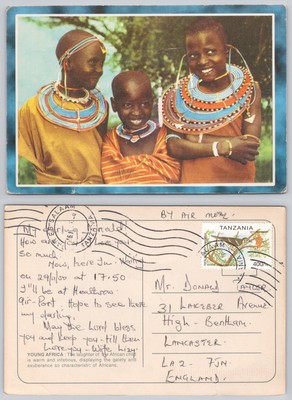 BY AIR MAIL
DAR ES SALAAM
TANZANIA
400/-
My Darling Donald,
How are you? I love you
so much.
Now, here I'm
on 29/1/00 at 17:50
I'll be at Heathrow
Air-Port. Hope to see here
my darling.
May the Lord bless
you and keep you - till then
Love you - Wife
Mr. DONALD
31 LAKEBER Avenue
High-Bentham.
LANCASTER
LA2 7JN
ENGLAND
YOUNG AFRICA: The laughter of the African child
is warm and infectious, displaying the gaiety and
exuberance so characteristic of Africans.